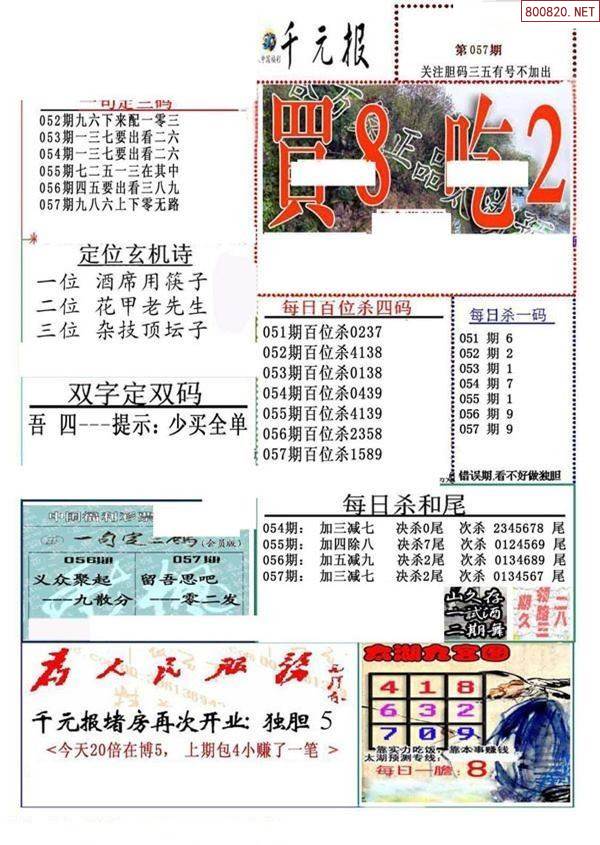 800820.NET
千元报
第057期
关注胆码三五有号不加出
一句定三码
052期九六下来配一零三
053期一三七要出看二六
054期一三七要出看二六
055期七二五一三在其中
056期四五要出看三八九
057期九八六上下零无路
買8 吃2
定位玄机诗
一位 酒席用筷子
二位 花甲老先生
三位 杂技顶坛子
每日百位杀四码
051期百位杀0237
052期百位杀4138
053期百位杀0138
054期百位杀0439
055期百位杀4139
056期百位杀2358
057期百位杀1589
每日杀一码
051 期 6
052 期 2
053 期 1
054 期 7
055 期 1
056 期 9
057 期 9
错误期,看不好做独胆
双字定双码
吾 四---提示: 少买全单
每日杀和尾
054期: 加三减七 决杀0尾 次杀 2345678 尾
055期: 加四除八 决杀7尾 次杀 0124569 尾
056期: 加五减九 决杀2尾 次杀 0134689 尾
057期: 加三减七 决杀2尾 次杀 0134567 尾
中国福利彩票
一句定二码(会员版)
056期
义众聚起
——九散分
057期
留吾思吧
——零二发
为人民服务
千元报堵房再次开业: 独胆 5
<今天20倍在博5, 上期包4小赚了一笔 >
太湖九宫图
4 1 8
6 3 2
7 0 9
靠实力吃饭, 靠本事赚钱
太湖预测专线:
每日一胆: 8